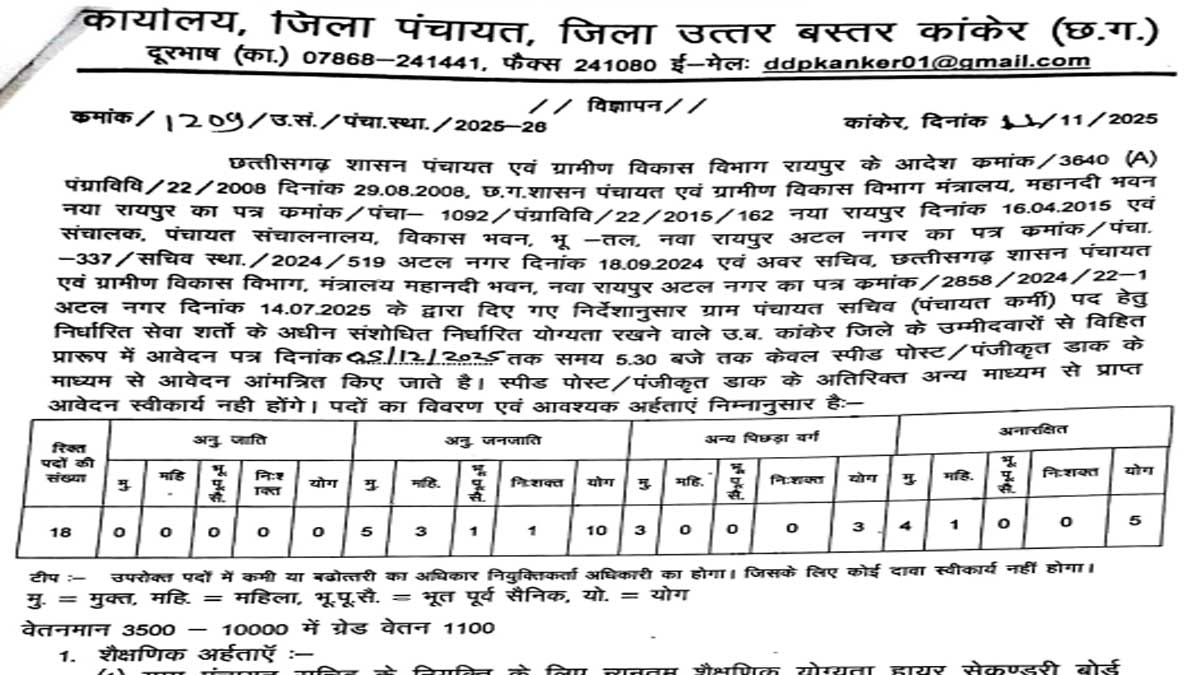 कार्यालय, जिला पंचायत, जिला उत्तर बस्तर कांकेर (छ.ग.)
दूरभाष (का.) 07868-241441, फैक्स 241080 ई-मेलः ddpkanker01@gmail.com
// विज्ञापन//
कमांक/1209/उ.सं./पंचा.स्था./2025-26 कांकेर, दिनांक 11/11/2025
छत्तीसगढ़ शासन पंचायत एवं ग्रामीण विकास विभाग रायपुर के आदेश कमांक/3640 (A)
पंग्राविवि/22/2008 दिनांक 29.08.2008, छ.ग.शासन पंचायत एवं ग्रामीण विकास विभाग मंत्रालय, महानदी भवन
नया रायपुर का पत्र कमांक/पंचा- 1092/पंग्राविवि/22/2015/162 नया रायपुर दिनांक 16.04.2015 एवं
संचालक, पंचायत संचालनालय, विकास भवन, भू -तल, नवा रायपुर अटल नगर का पत्र कमांक/पंचा.
-337/सचिव स्था./2024/519 अटल नगर दिनांक 18.09.2024 एवं अवर सचिव, छत्तीसगढ़ शासन पंचायत
एवं ग्रामीण विकास विभाग, मंत्रालय महानदी भवन, नवा रायपुर अटल नगर का पत्र कमांक/2858/2024/22-1
अटल नगर दिनांक 14.07.2025 के द्वारा दिए गए निर्देशानुसार ग्राम पंचायत सचिव (पंचायत कर्मी) पद हेतु
निर्धारित सेवा शर्तो के अधीन संशोधित निर्धारित योग्यता रखने वाले उ.ब. कांकेर जिले के उम्मीदवारों से विहित
प्रारूप में आवेदन पत्र दिनांक 05/12/2025 तक समय 5.30 बजे तक केवल स्पीड पोस्ट/पंजीकृत डाक के
माध्यम से आवेदन आंमत्रित किए जाते है। स्पीड पोस्ट/पंजीकृत डाक के अतिरिक्त अन्य माध्यम से प्राप्त
आवेदन स्वीकार्य नही होंगे। पदों का विवरण एवं आवश्यक अर्हताएं निम्नानुसार हैः-
रिक्त पदों की संख्या अनु. जाति अनु. जनजाति अन्य पिछड़ा वर्ग अनारक्षित
मु. महि. भू.पू.सै. निःशक्त योग मु. महि. भू.पू.सै. निःशक्त योग मु. महि. भू.पू.सै. निःशक्त योग मु. महि. भू.पू.सै. निःशक्त योग
18 0 0 0 0 0 5 3 1 1 10 3 0 0 0 3 4 1 0 0 5
टीप :- उपरोक्त पदों में कमी या बढोत्तरी का अधिकार नियुक्तिकर्ता अधिकारी का होगा। जिसके लिए कोई दावा स्वीकार्य नहीं होगा।
मु. = मुक्त, महि. = महिला, भू.पू.सै. = भूत पूर्व सैनिक, यो. = योग
वेतनमान 3500 - 10000 में ग्रेड वेतन 1100
1. शैक्षणिक अर्हताऍ :-
(1) ग्राम पंचायत सचिव के नियुक्ति के लिए न्यूनतम शैक्षणिक योग्यता हायर सेकण्डरी बोर्ड